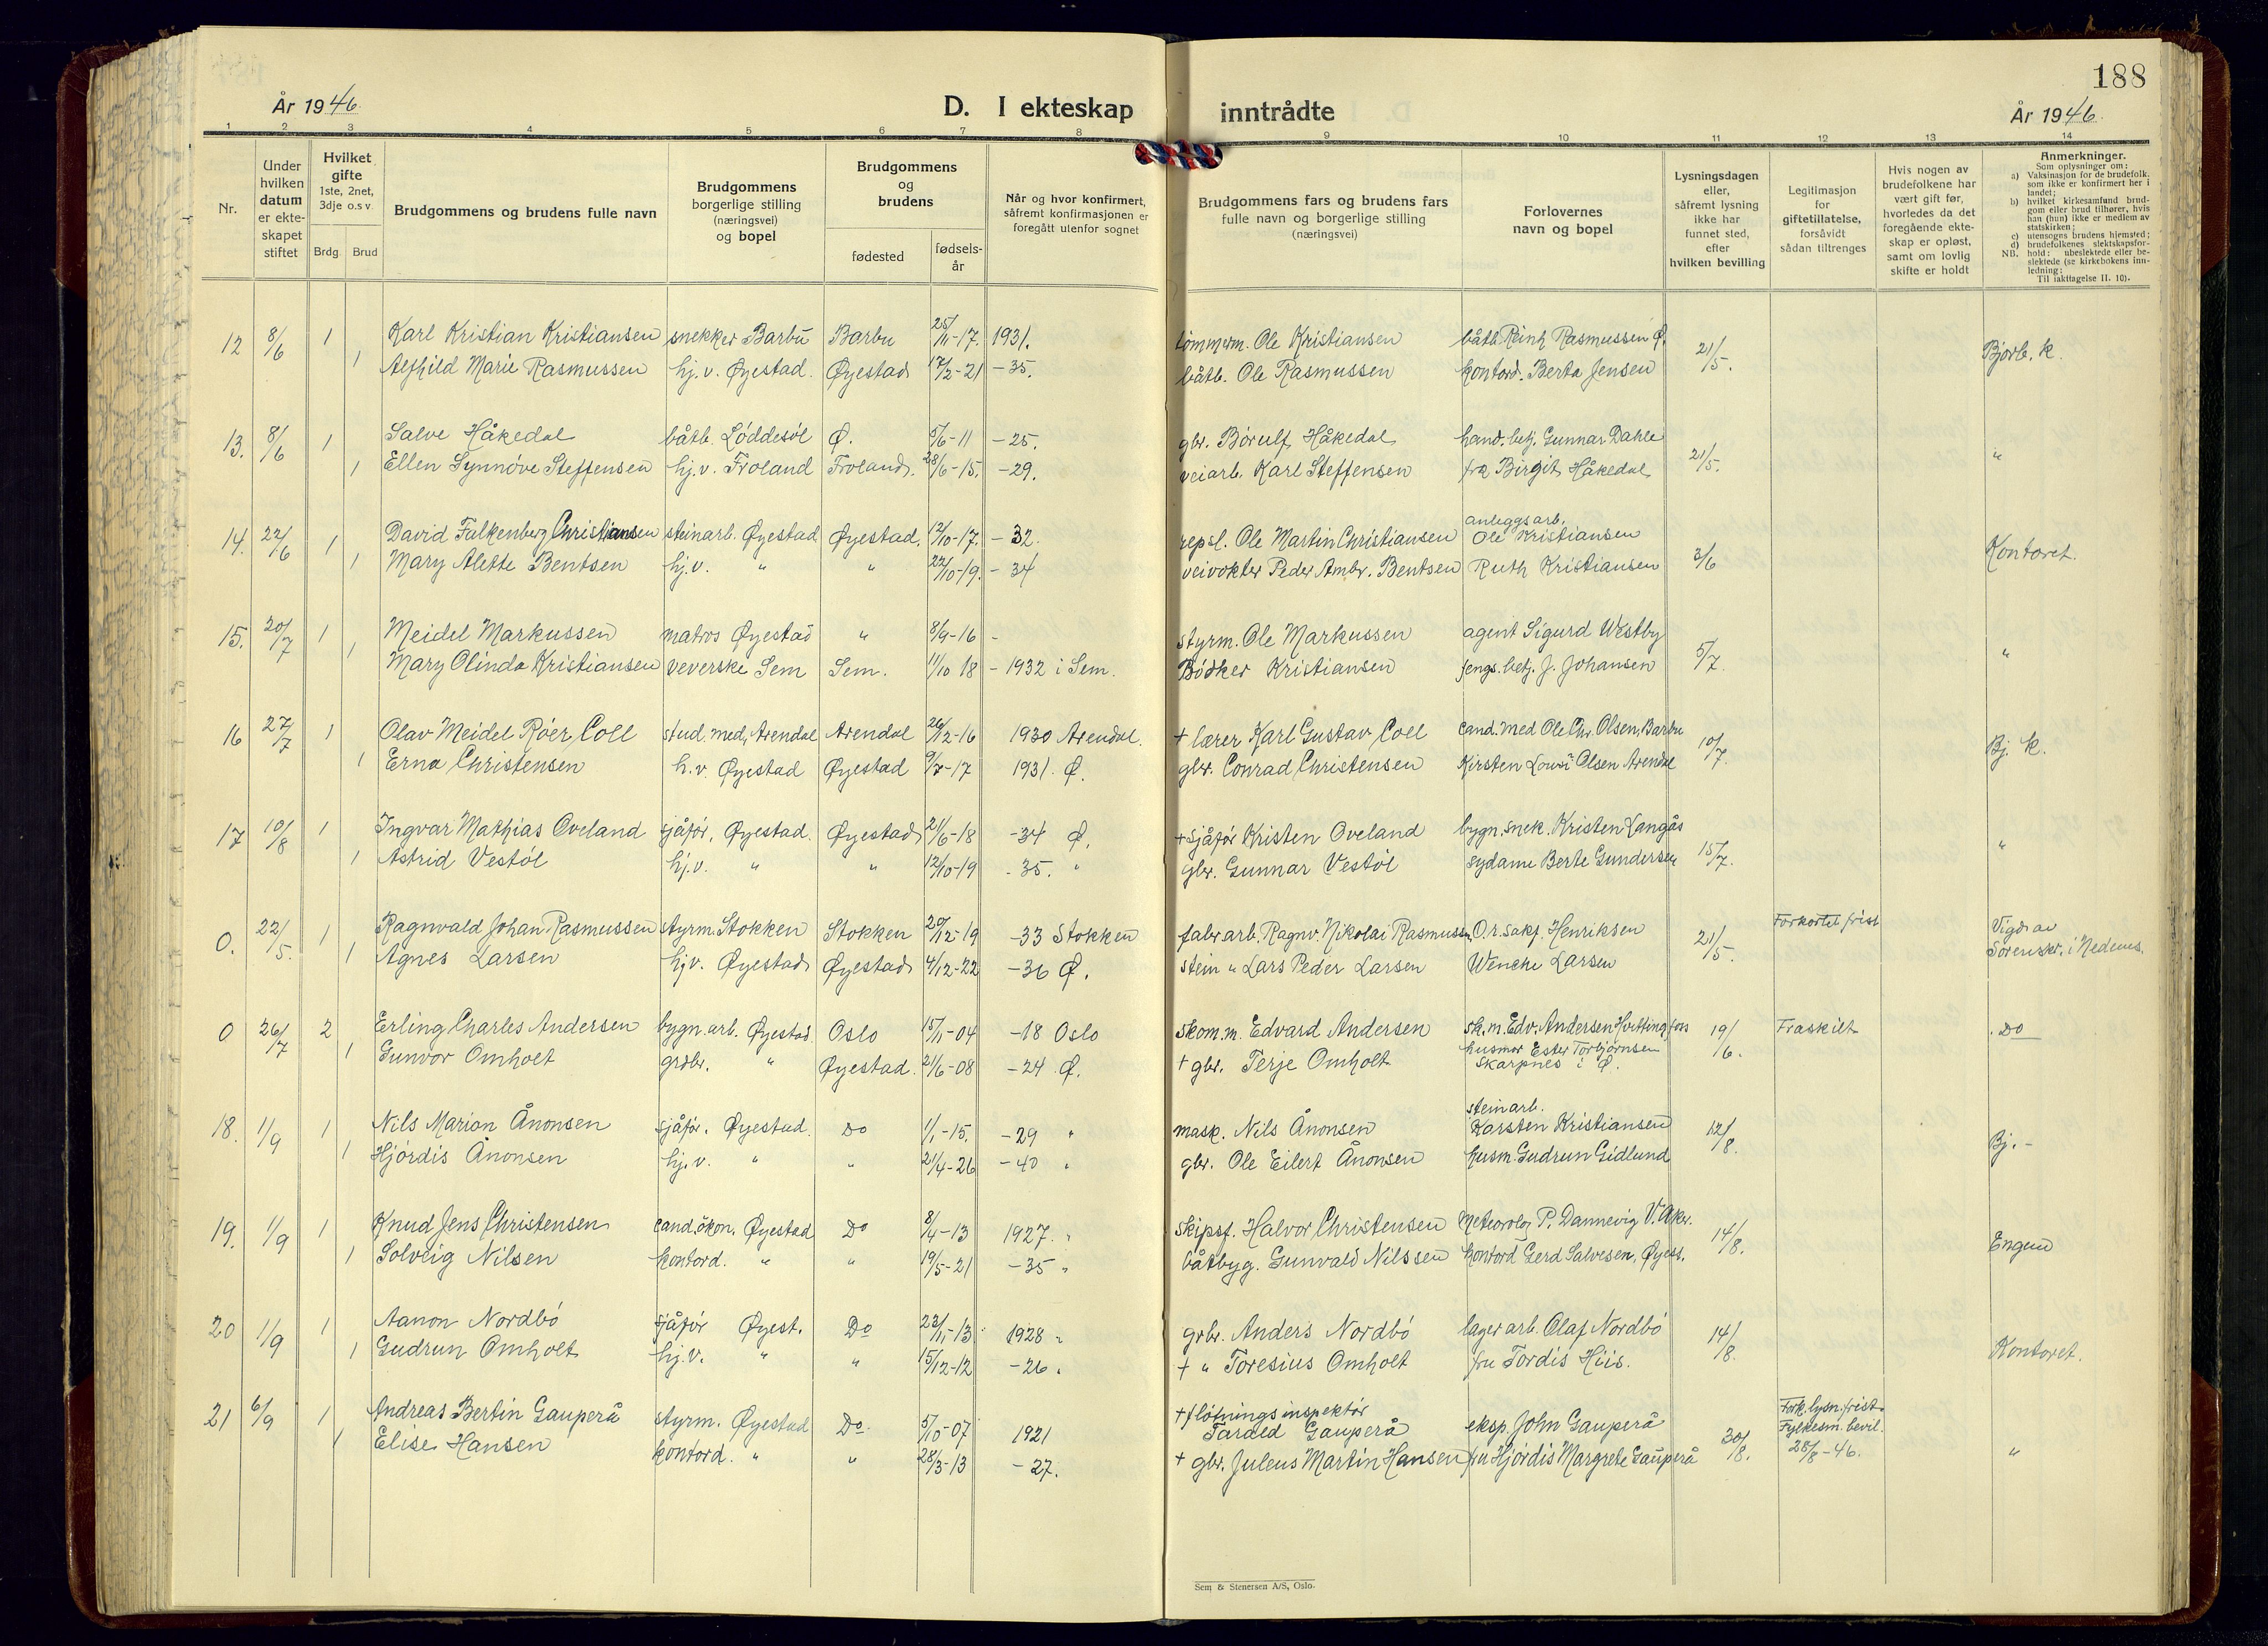 188
År 1946. D. I ekteskap inntrådte År 1946.
1 2 3 4 5 6 7 8 9 10 11 12 13 14
Nr.
Under hvilken datum er ekteskapet stiftet
Hvilket gifte 1ste, 2net, 3dje o.s v.
Brdg. Brud
Brudgommens og brudens fulle navn
Brudgommens borgerlige stilling (næringsvei) og bopel
Brudgommens og brudens
fødested fødselsår
Når og hvor konfirmert, såfremt konfirmasjonen er foregått utenfor sognet
Brudgommens fars og brudens fars fulle navn og borgerlige stilling (næringsvei)
Forlovernes navn og bopel
Lysningsdagen eller, såfremt lysning ikke har funnet sted, efter hvilken bevilling
Legitimasjon for giftetillatelse, forsåvidt sådan tiltrenges
Hvis nogen av brudefolkene har vært gift før, hvorledes da det foregående ekteskap er opløst, samt om lovlig skifte er holdt
Anmerkninger.
Som oplysninger om:
a) Vaksinasjon for de brudefolk, som ikke er konfirmert her i landet;
b) hvilket kirkesamfund brudgom eller brud tilhører, hvis han (hun) ikke er medlem av statskirken;
c) utensogns brudens hjemsted;
d) brudefolkenes slektskapsforhold: ubeslektede eller beslektede (se kirkebokens innledning;
NB. Til iakttagelse II. 10).
12 8/6 1 Karl Kristian Kristiansen snekker Barbu Barbu 25/11-17. 1931. tømmerm. Ole Kristiansen båtb. Reinh Rasmussen Ø. 21/5. Bjorb. k.
1 Alfhild Marie Rasmussen hj. v. Øyestad. Øyestad 17/2-21 -35. båtb. Ole Rasmussen kontord. Berta Jensen
13. 8/6 1 Salve Håkedal båtb. Løddesøl Ø. 5/6-11 -25. gbr. Børulf Håkedal hand. betj. Gunnar Dahle 21/5. "
1 Ellen Synnøve Steffensen hj. v. Froland Froland. 28/6-15. -29. veiarb. Karl Steffensen fra Birgit Håkedal
14. 22/6 1 David Falkenberg Christiansen steinarb. Øyestad Øyestad. 12/10-17. -32. repsl. Ole Martin Christiansen anleggsarb. Ole Kristiansen 3/6 Kontoret.
1 Mary Alette Bentsen hj. v. " " 22/10-19. -34 veivokter Peder Ambr. Bentsen Ruth Kristiansen
15. 20/7 1 Meidel Markussen matros Øyestad " 8/9-16 - styrm. Ole Markussen agent Sigurd Westby 5/7. "
1 Mary Olinda Kristiansen veverske Sem Sem. 11/10 18 - 1932 i Sem. Bødker Kristiansen fengs. betj. J. Johansen
16 27/7 1 Olav Meidel Röer Coll stud. med, Arendal Arendal 26/12-16 1930 Arendal. + lærer Karl Gustav Coll cand. med Ole Chr. Olsen, Barbu 10/7. Bj. k.
1 Erna Christensen h. v. Øyestad Øyestad 9/7-17 1931. Ø. gbr. Conrad Christensen Kirsten Olsen Arendal
17 10/8 1 Ingvar Mathias Oveland sjåfør, Øyestad. Øyestad 21/6-18 -34 Ø. + sjåfør Kristen Oveland bygn. snek. Kristen Langås 15/7. "
1 Astrid Vestøl hj. v. " " 12/10-19 -35. " gbr. Gunnar Vestøl sydame Berte Gundersen
0. 22/5. 1 Ragnvald Johan Rasmussen styrm. Stokken Stokken 20/12-19 -33 Stokken fabr arb. Ragnv. Nikolai Rasmussen O. r. sakf. Henriksen 21/5. Forkortet frist Vigd av
1 Agnes Larsen hjv. Øyestad Øyestad 4/12-22 -36 Ø. stein " Lars Peder Larsen Wenche Larsen Sorenskr. i Nedenes.
0 26/7 2 Erling Charles Andersen bygn. arb. Øyestad Oslo 15/11-04 -18 Oslo skom. m. Edvard Andersen sk. m. Edv. Andersen Hvittingfoss 19/6. Fraskilt Do
1 Gunvor Omholt grdbr. " Øyestad. 21/6-08 -24. Ø. + gbr. Terje Omholt husmor Ester Torbjørnsen Skarpnes i Ø.
18. 1/9 1 Nils Marion Ånonsen sjåfør. Øyestad. Do 1/1-15. -29 " mask. Nils Ånonsen steinarb. Karsten Kristiansen 12/8. Bj. -
1 Hjørdis Ånonsen hj. v. " " 21/4-26 -40 " gbr. Ole Eilert Ånonsen husm. Gudrun Gidlund
19. 1/9 1 Knud Jens Christensen cand. økon. Øyestad Do 8/4-13 1927. " skipsf. Halvor Christensen Meteorolog P. Dannevig V. Aker. 14/8. Engene
1 Solveig Nilsen kontord. " " 19/5-21 -35 " båtbyg. Gunvald Nilssen kontord Gerd Salvesen, Øyest.
20 1/9 1 Aanon Nordbö sjåfør Øyest. Do 23/11-13 1928 " grbr. Anders Nordbö lager arb. Olaf Nordbö 14/8. Kontoret.
1 Gudrun Omholt hj. v. " " 15/12-12 -26 " + " Toresius Omholt fru Tordis Hiis.
21 6/9 1 Andreas Bertin Gauperå styrm. Øyestad Do. 5/10-07 1921 + fløtningsinspektør Tarald Gauperå eksp. John Gauperå 30/8. Fork. lysn. frist. Fylkesm. bevil. 28/8-46. "
1 Elise Hansen kontord. " " 28/3-13 -27. + gbr. Juleus Martin Hansen fru Hjørdis Margrete Gauperå
Sem & Stenersen A/S, Oslo.